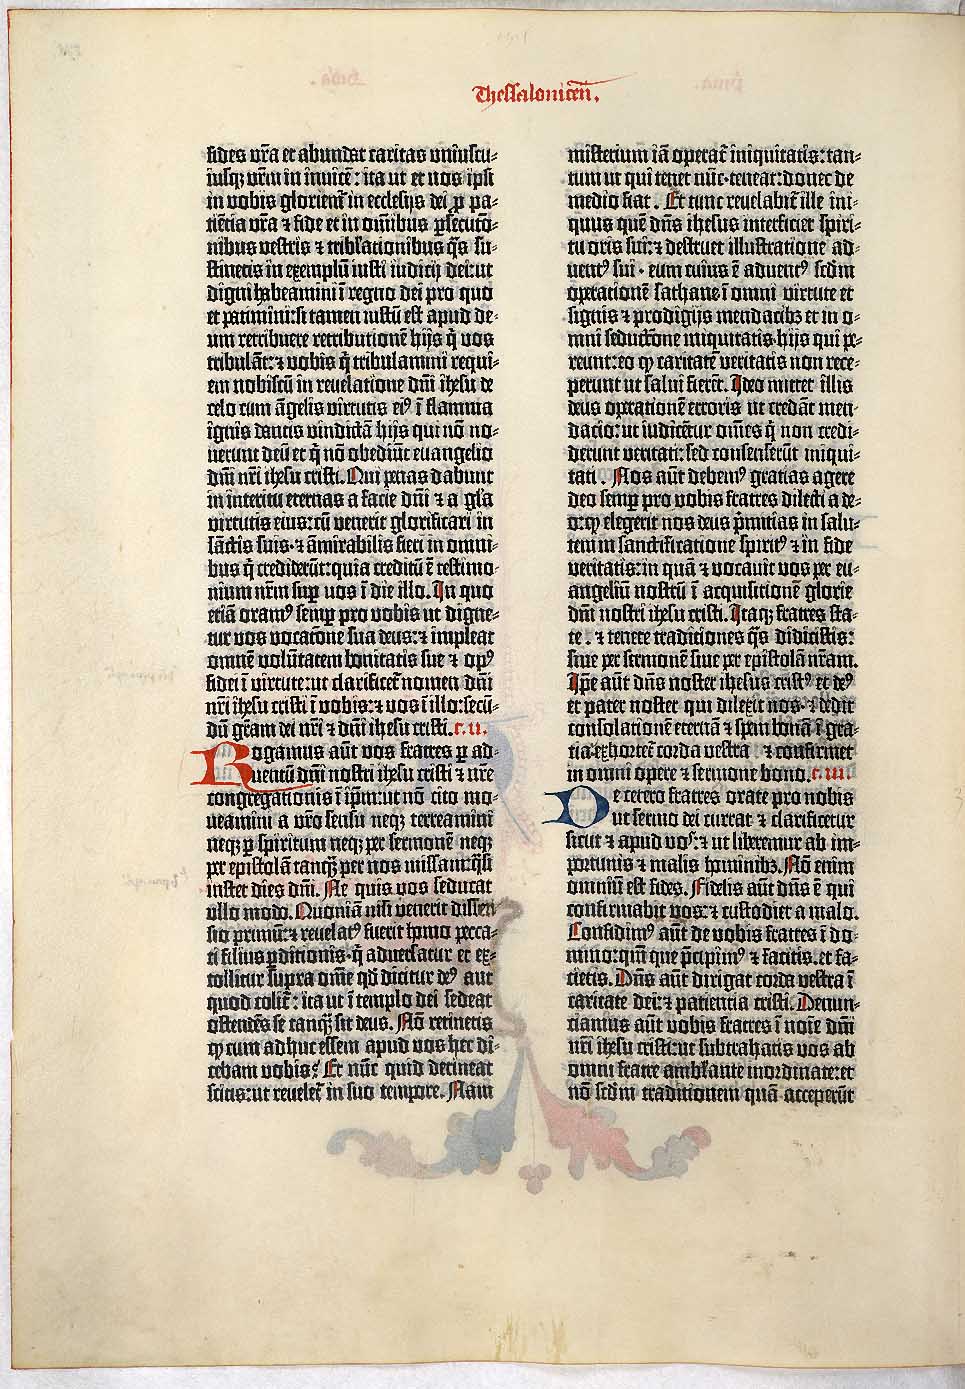 Thessalonicen̄.
fides vr̄a et abundat caritas vniuscu⸗
iusqꝫ vr̄m in inuicē: ita ut et nos ipsi
in vobis gloriem̄ in ecclesijs dei ꝓ pa⸗
tiētia vr̄a ⁊ fide et in om̄ibus ꝑsecuto⸗
nibus vestris ⁊ tribl̄ationibus qͣs su⸗
stinetis in exemplū iusti iudicij dei: ut
digni habeamini ī regno dei pro quo
et patimini: si tamen iustū est apud de⸗
um retribuere retributionē hijs q̄ vos
tribulāt: ⁊ vobis q̄ tribulamini requi⸗
em nobiscū in reuelatione dn̄i ih̄esu de
celo cum āgelis virtutis eiꝰ ī flamma
ignis dantis vindictā hijs qui nō no⸗
uerunt deū et q̄ nō obediūt euangelio
dn̄i nr̄i ih̄esu cristi. Qui penas dabunt
in interitu eternas a facie dn̄i ⁊ a gl̄a
virtutis eius: cū venerit glorificari in
sāctis suis· ⁊ āmirabilis fieri in omni⸗
bus q̄ crediderūt: quia creditū ē testimo⸗
nium nr̄m suꝑ vos ī die illo. In quo
etiā oramꝰ semꝑ pro vobis ut digne⸗
tur vos vocatōne sua deus: ⁊ impleat
omnē volūtatem bonitatis sue ⁊ opꝰ
fidei ī virtute: ut clarificet̄ nomen dn̄i
nr̄i ih̄esu cristi ī vobis: ⁊ vos ī illo: secū⸗
dū gr̄am dei nr̄i ⁊ dn̄i ih̄esu cristi. c. ii.
Rogamus aūt vos fratres ꝑ ad⸗
uentū dn̄i nostri ih̄esu cristi ⁊ nr̄e
congregationis ī ip̄m: ut nō cito mo⸗
ueamini a vr̄o sensu neqꝫ terreamini
neqꝫ ꝑ spiritum neqꝫ per sermonē neqꝫ
per epistolā tanqͣꝫ per nos missam: qͣsi
instet dies dn̄i. Ne quis vos seducat
vllo modo. Quoniā nisi venerit discen⸗
sio primū: ⁊ reuelatꝰ fuerit homo pecca⸗
ti filius ꝑditionis· q̄ aduersatur et ex⸗
tollitur supra om̄e qd̄ dicitur deꝰ aut
quod colit̄: ita ut ī templo dei sedeat
ostendēs se tanqͣꝫ sit deus. Nō retinetis
ꝙ cum adhuc essem apud vos hec di⸗
cebam vobis? Et nūc quid detineat
scitis: ut reuelet̄ in suo tempore. Nam
misterium iā operat̄ iniquitatis: tan⸗
tum ut qui tenet nūc· teneat: donec de
medio fiat. Et tunc reuelabit̄ ille ini⸗
quus quē dn̄s ih̄esus interficiet spiri⸗
tu oris sui: ⁊ destruet illustratione ad⸗
uentꝰ sui· eum cuius ē aduentꝰ scd̄m
operationē sathane ī omni virtute et
signis ⁊ prodigijs mendacibꝫ et in o⸗
mni seductōne iniquitatis· hijs qui pe⸗
reunt: eo ꝙ caritatē veritatis non rece⸗
perunt ut salui fierēt. Ideo mittet illis
deus operationē erroris ut credāt men⸗
dacio: ut iudicētur om̄es q̄ non credi⸗
derunt veritati: sed consenserūt iniqui⸗
tati. Nos aūt debemꝰ gratias agere
deo semꝑ pro vobis fratres dilecti a de⸗
o: ꝙ elegerit nos deus p̄mitias in salu⸗
tem in sanctificatione spiritꝰ ⁊ in fide
veritatis: in quā ⁊ vocauit vos per eu⸗
angeliū nostrū ī acquisitionē glorie
dn̄i nostri ih̄esu cristi. Itaqꝫ fratres sta⸗
te: ⁊ tenete traditiones qͣs didicistis:
siue per sermonē siue per epistolā nr̄am.
Ip̄e aūt dn̄s noster ih̄esus cristꝰ et deꝰ
et pater noster qui dilexit nos· ⁊ dedit
consolationē eternā ⁊ spem bonā ī gra⸗
tia· exhortet̄ corda vestra ⁊ confirmet
in omni opere ⁊ sermone bono. c. iii.
De cetero fratres orate pro nobis
ut sermo dei currat ⁊ clarificetur
sicut ⁊ apud vos: ⁊ ut liberemur ab im⸗
portunis ⁊ malis hominibꝫ. Nō enim
omniū est fides. Fidelis aūt dn̄s ē qui
confirmabit vos: ⁊ custodiet a malo.
Confidimꝰ aūt de vobis fratres ī do⸗
mino: qm̄ que p̄cipimꝰ ⁊ facitis· et fa⸗
cietis. Dn̄s aūt dirigat corda vestra ī
caritate dei: ⁊ patientia cristi. Denun⸗
ciamus aūt vobis fratres ī noīe dn̄i
nr̄i ih̄esu cristi: ut subtrahatis vos ab
omni fratre ambl̄ante inordinate: et
nō scd̄m traditionem quā acceperūt